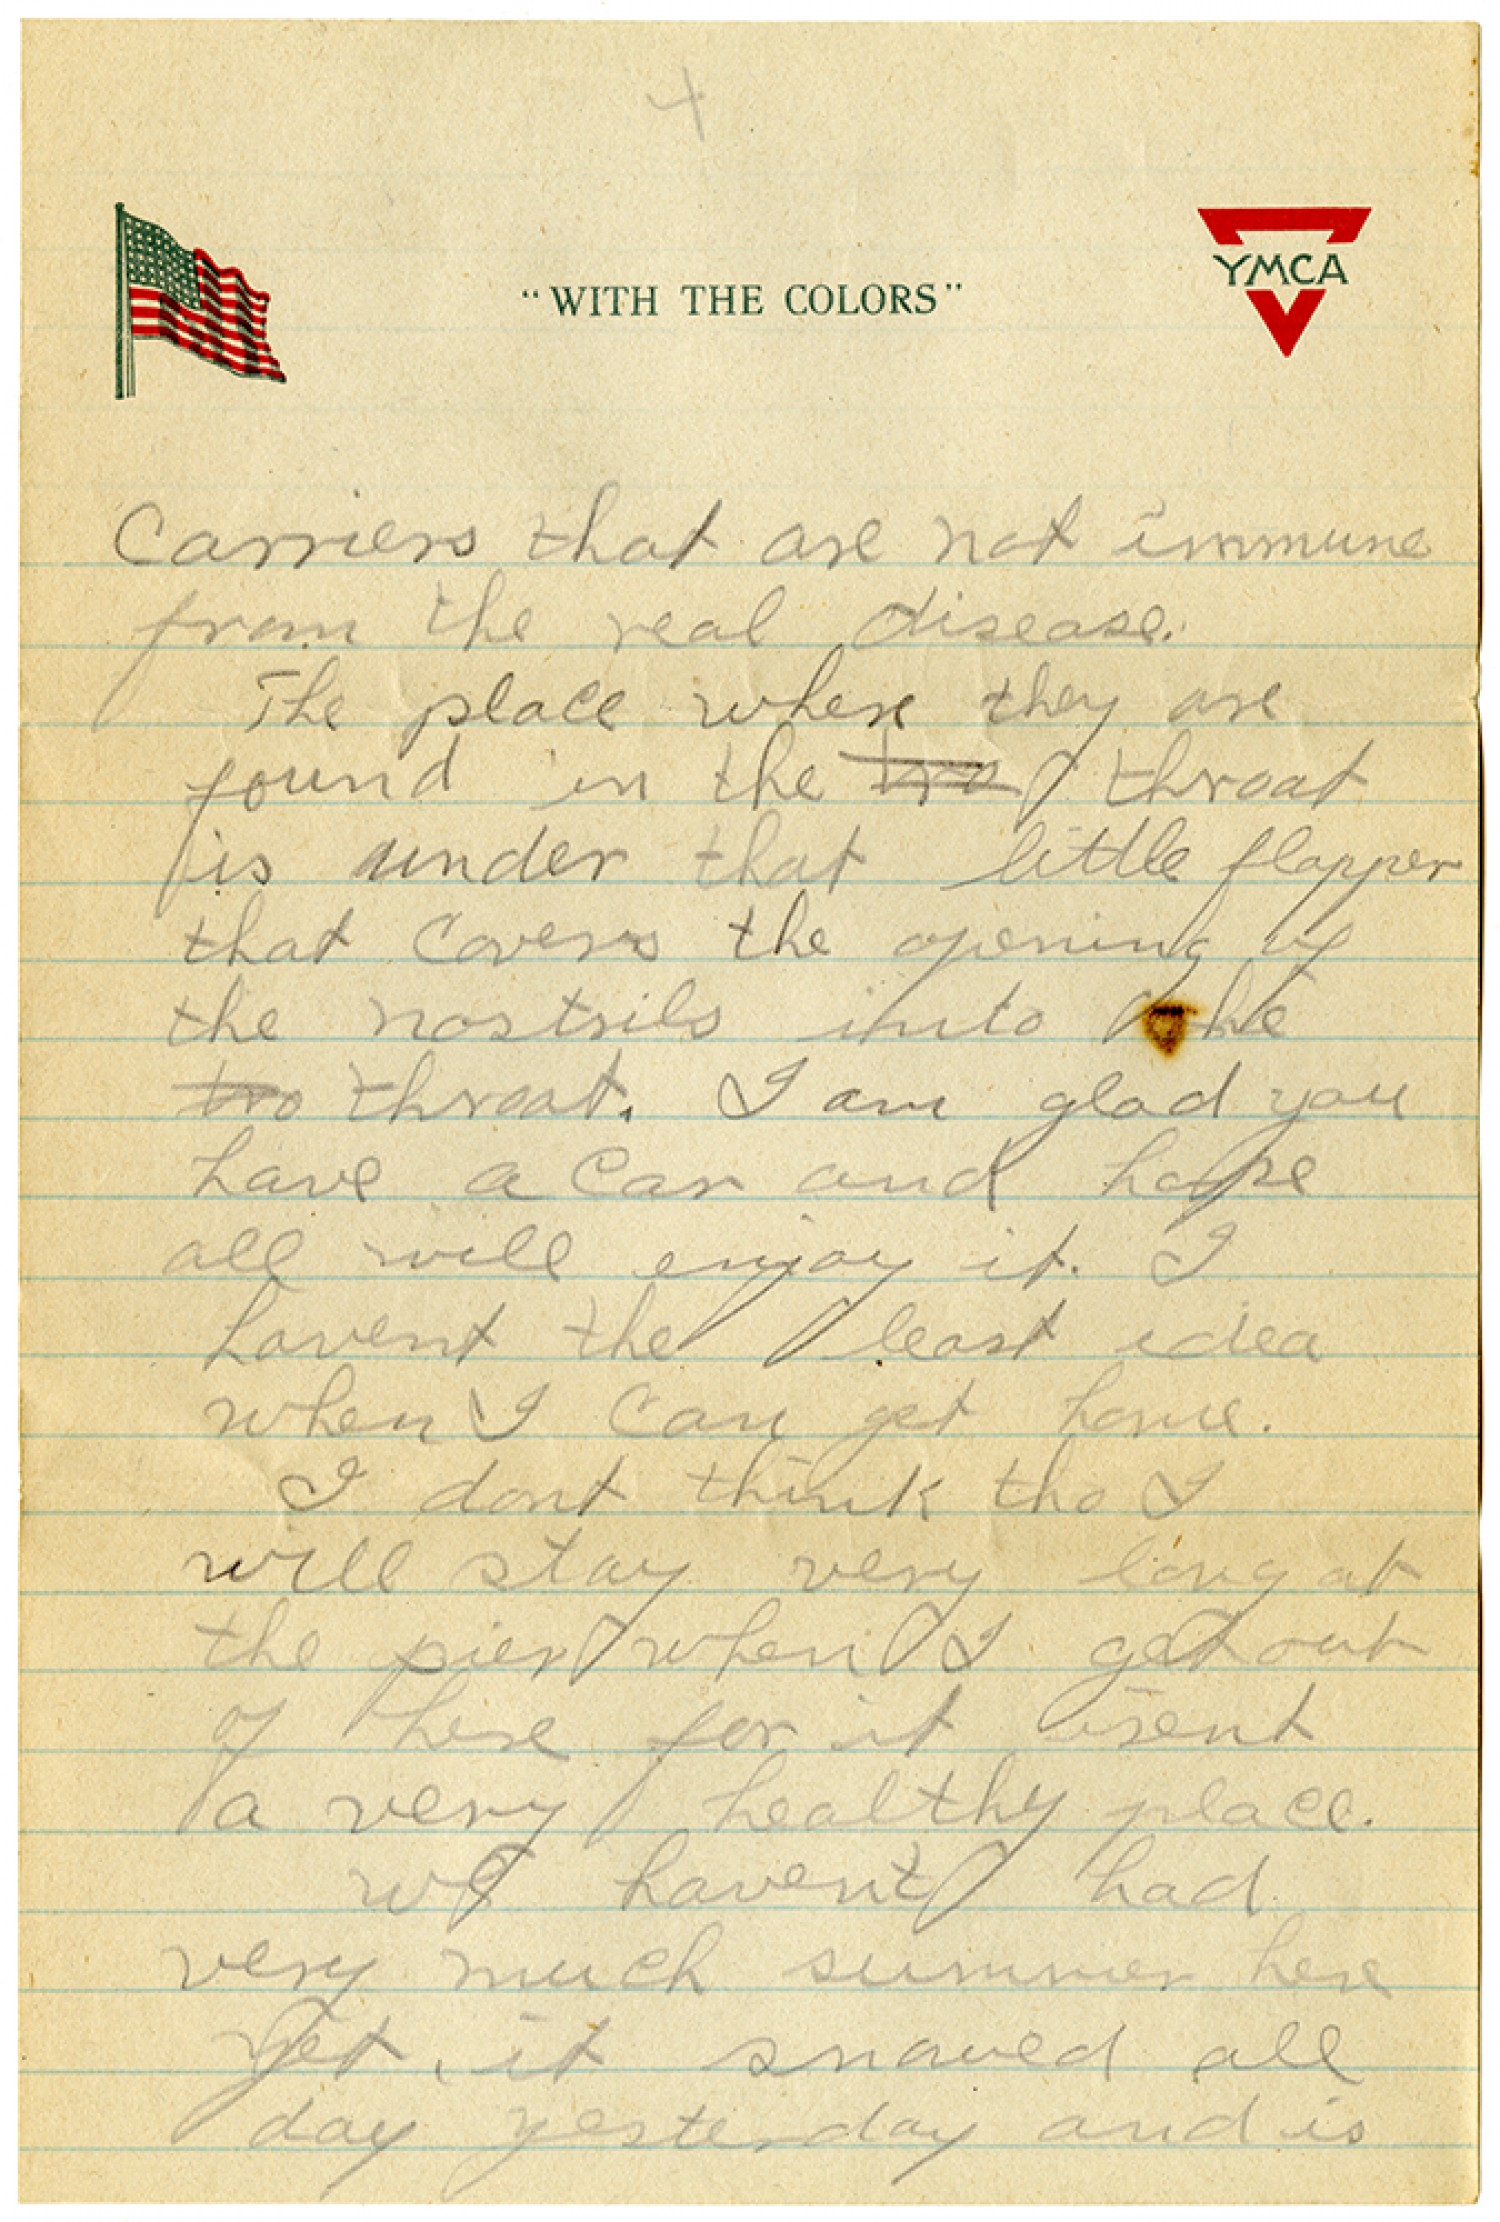 4
"WITH THE COLORS"
YMCA
Carriers that are not immune
from the real disease.
The place where they are
found in the tro throat
is under that little flapper
that covers the opening of
the nostrils into the
tro throat. I am glad you
have a car and hope
all will enjoy it. I
havent the least idea
when I can get home.
I dont think tho I
will stay very long at
the pier when I get out
of here for it isent
a very healthy place.
we havent had
very much summer here
yet, it snowed all
day yesterday and is